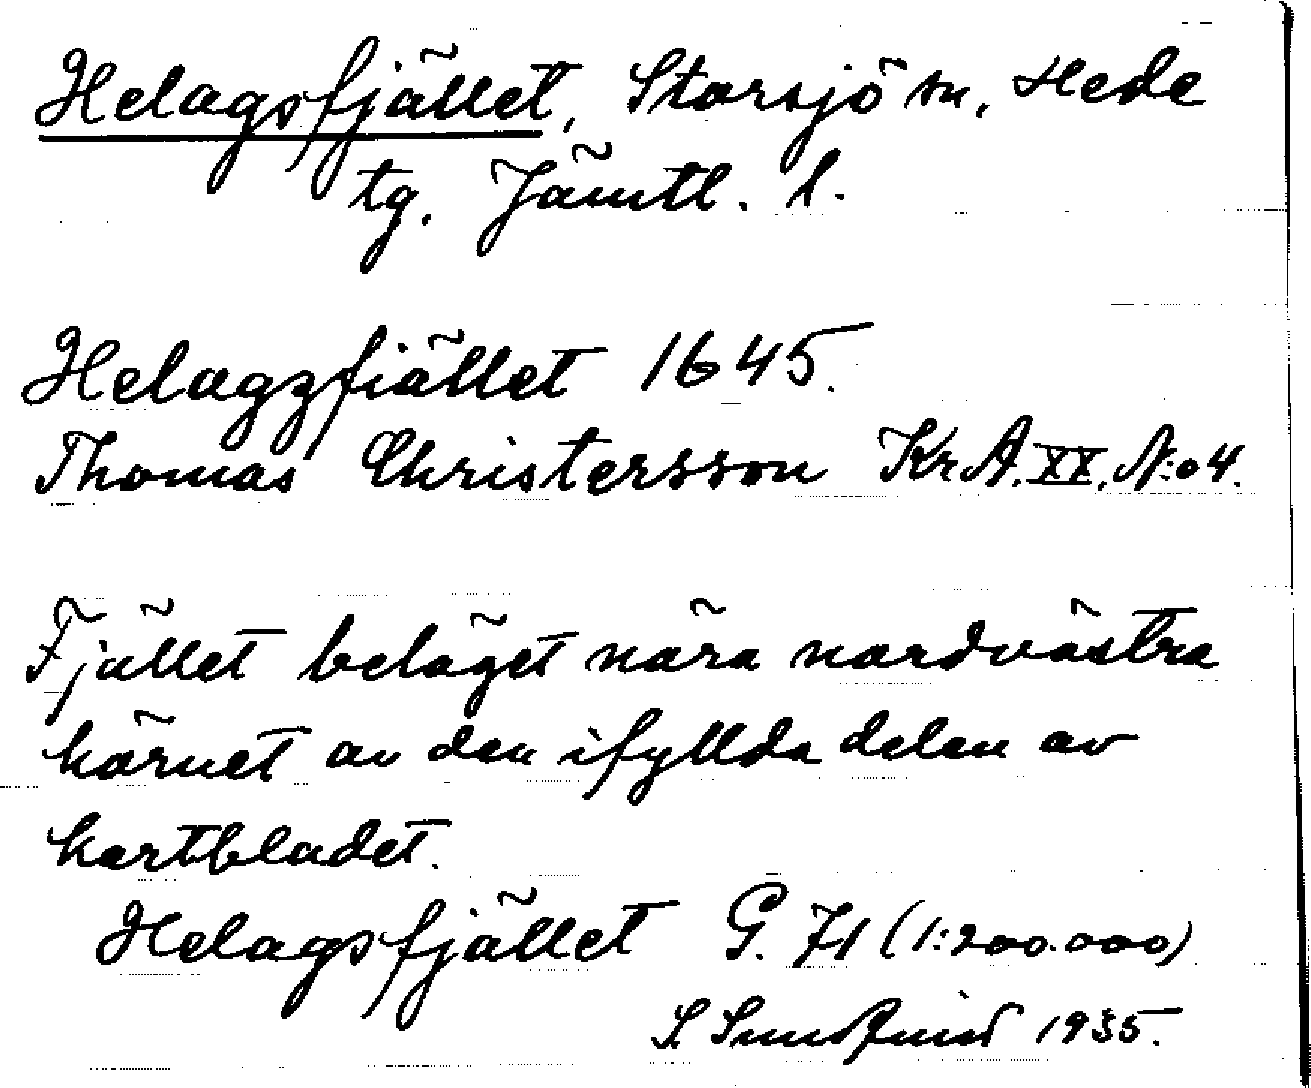 Helagsfjället, Storsjö sn, Hede
tg. Jämtl. l.
Helagzfiället 1645.
Thomas Christersson Kr.A. XX, N:o 4.
Fjället beläget nära nordvästra
hörnet av den ifyllda delen av
kartbladet.
Helagsfjället G. 71 (1:200.000)
S. 1935.